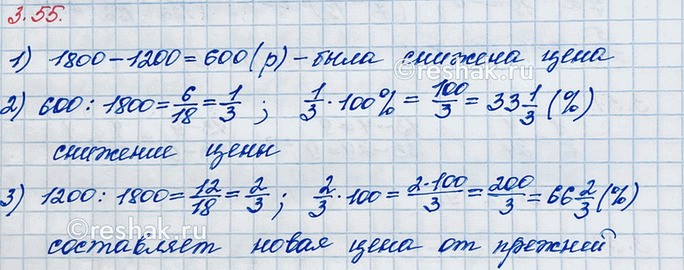 3.55.
1) 1800 - 1200 = 600 (р) - была снижена цена
2) 600 : 1800 = 6/18 = 1/3 ; 1/3 · 100% = 100/3 = 33 1/3 (%)
снижение цены
3) 1200 : 1800 = 12/18 = 2/3 ; 2/3 · 100 = 2·100/3 = 200/3 = 66 2/3 (%)
составляет новая цена от прежний